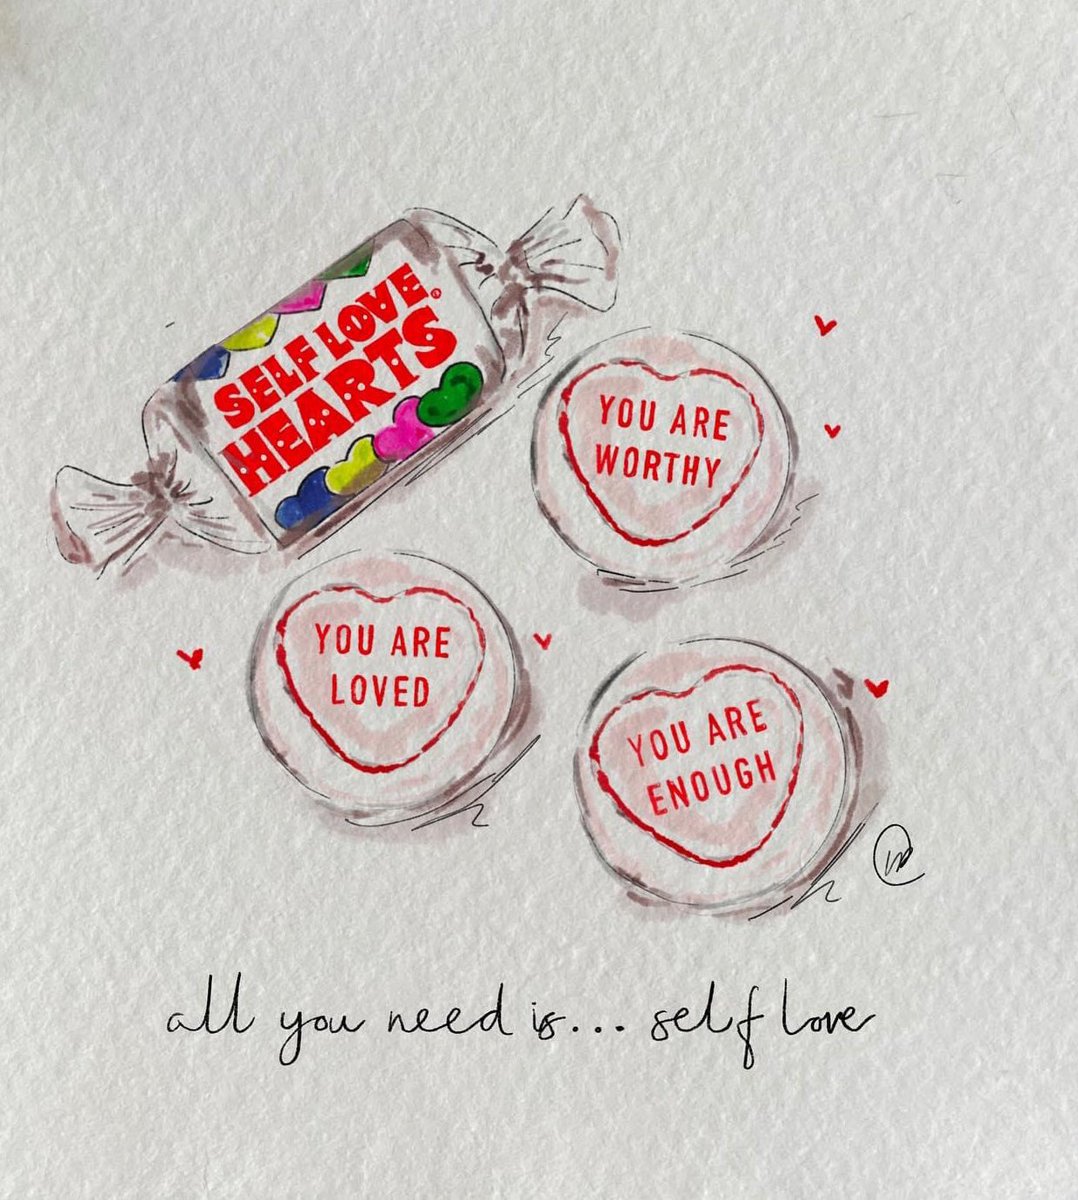 SELF LOVE
HEARTS
YOU ARE
WORTHY
YOU ARE
LOVED
YOU ARE
ENOUGH
all you need is... self love